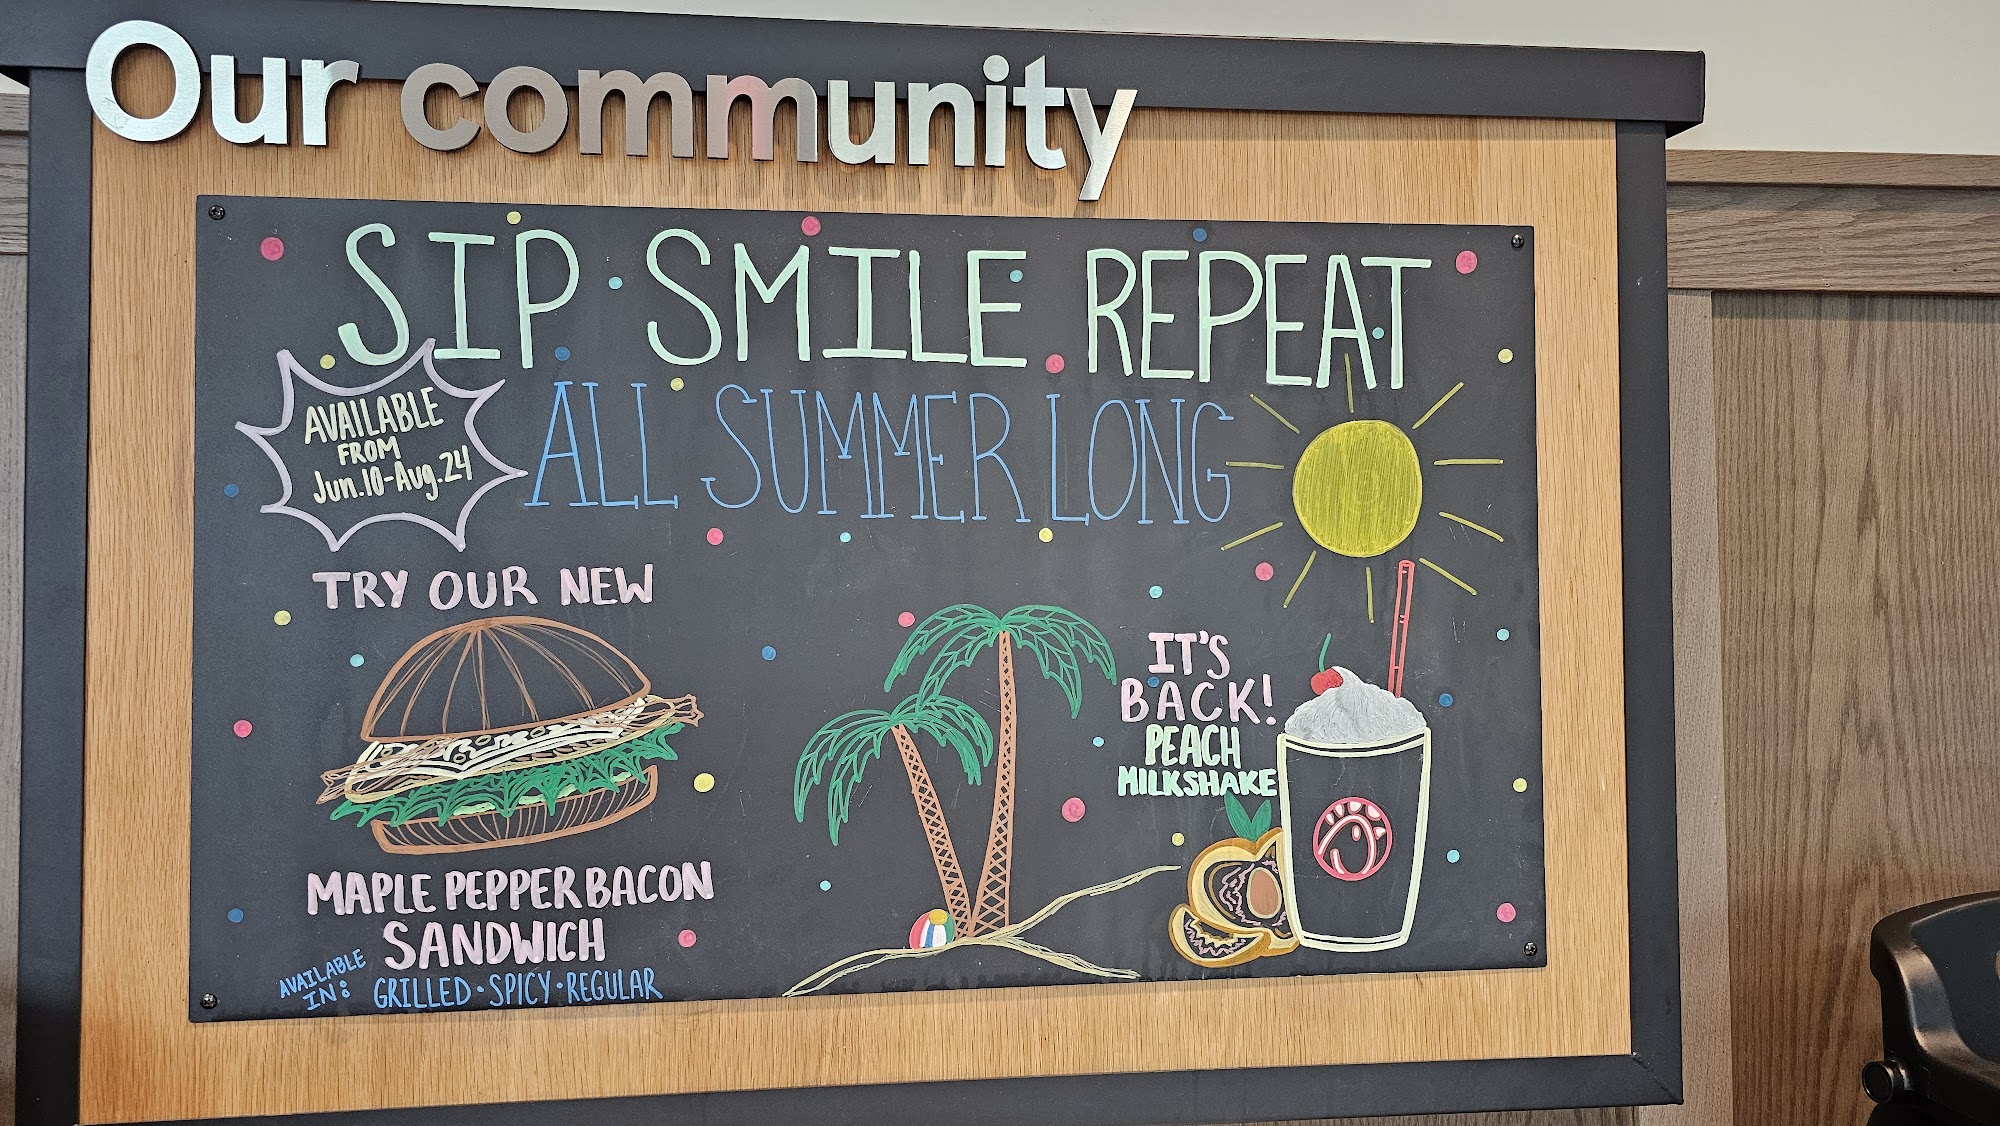 Our community
SIP SMILE REPEAT
ALL SUMMER LONG
AVAILABLE
FROM
Jun.10-Aug.24
TRY OUR NEW
MAPLE PEPPER BACON
SANDWICH
AVAILABLE
IN:
GRILLED·SPICY·REGULAR
IT'S
BACK!
PEACH
MILKSHAKE